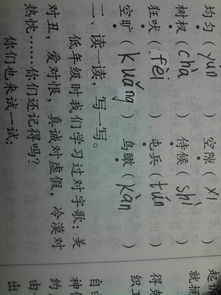 均匀(yún) 空隙(xì)
树杈(chà) 侍候(shì)
狂吠(fèi) 屯兵(tún)
空旷(kuǎng) 鸟瞰(kàn)
二、读一读,写一写。
低年级时我们学习过对字歌:美
对丑,爱对恨,真诚对虚假,冷漠对
热忱……你们还记得吗?
你们也来试一试: